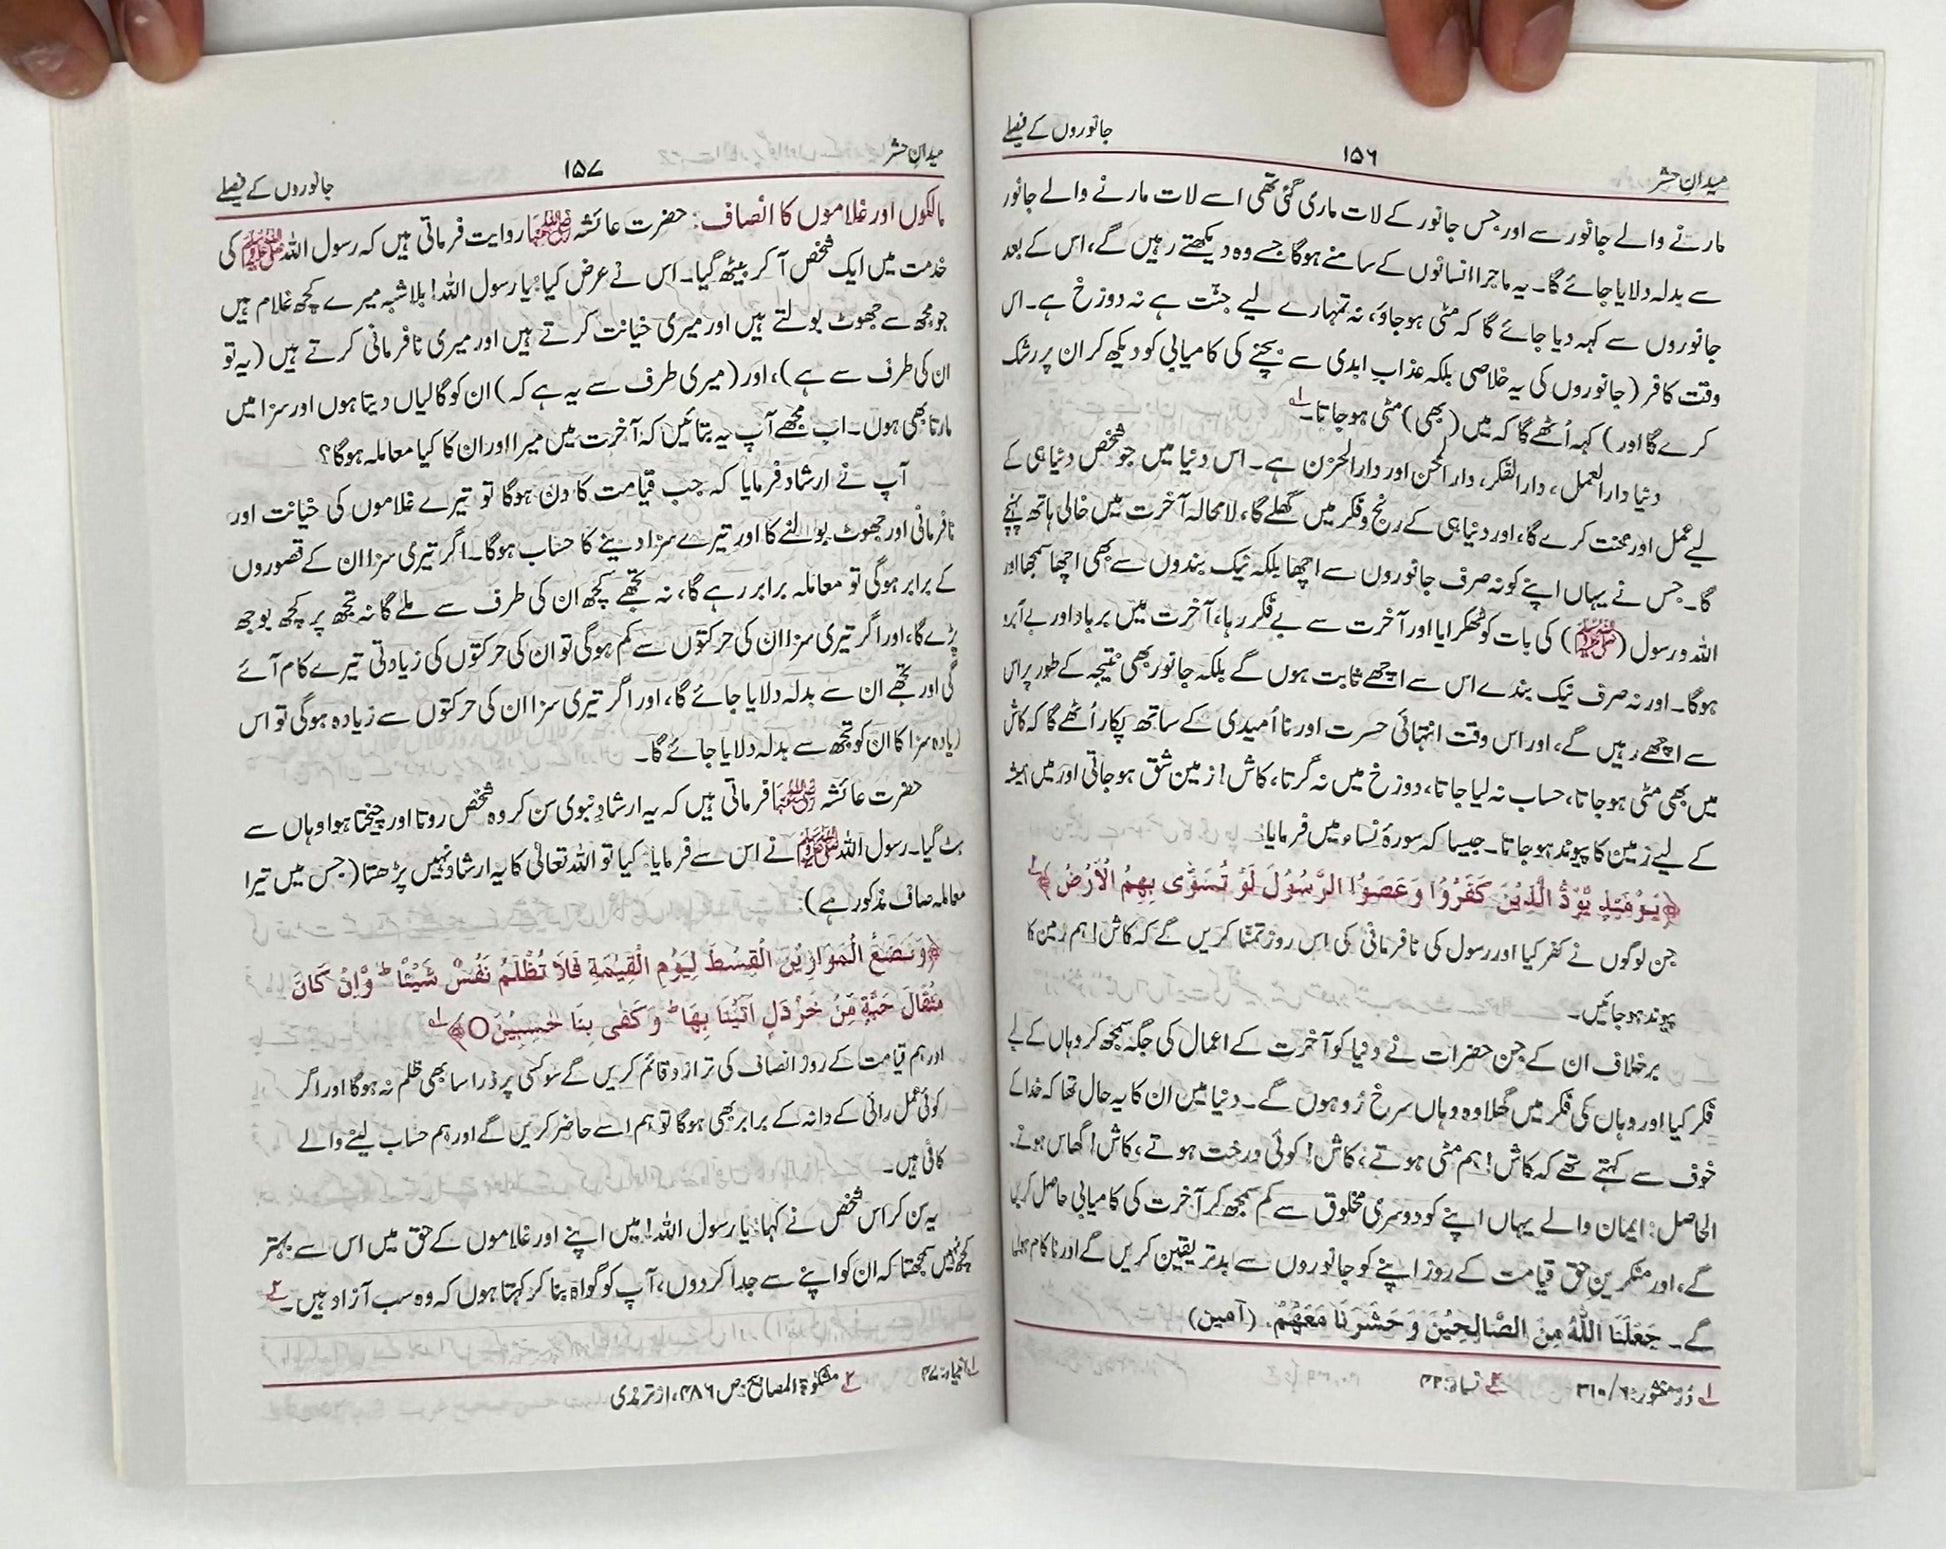 میدانِ حشر
۱۵۶
جانوروں کے فیصلے
مارنے والے جانور سے اور جس جانور کے لات ماری گئی تھی اسے لات مارنے والے جانور
سے بدلہ دلایا جائے گا۔ یہ ماجرا انسانوں کے سامنے ہوگا جسے وہ دیکھتے رہیں گے، اس کے بعد
جانوروں سے کہہ دیا جائے گا کہ مٹی ہو جاؤ، نہ تمہارے لیے جنّت ہے نہ دوزخ ہے۔ اس
وقت کافر (جانوروں کی یہ خلاصی بلکہ عذابِ ابدی سے بچنے کی کامیابی کو دیکھ کر ان پر رشک
کرے گا اور) کہہ اُٹھے گا کہ میں (بھی) مٹی ہو جاتا۔ لہ
دنیا دارالعمل، دارالفکر، دارالمحن اور دارالحزن ہے۔ اس دنیا میں جو شخص دنیا ہی کے
لیے عمل اور محنت کرے گا، اور دنیا ہی کے رنج و فکر میں گھلے گا، لامحالہ آخرت میں خالی ہاتھ پہنچے
گا۔ جس نے یہاں اپنے کو نہ صرف جانوروں سے اچھا بلکہ نیک بندوں سے بھی اچھا سمجھا اور
اللہ و رسول (ﷺ) کی بات کو ٹھکرایا اور آخرت سے بے فکر رہا، آخرت میں برباد اور بے آبرو
ہوگا۔ اور نہ صرف نیک بندے اس سے اچھے ثابت ہوں گے بلکہ جانور بھی نتیجہ کے طور پر اس
سے اچھے رہیں گے، اور اس وقت انتہائی حسرت اور نااُمیدی کے ساتھ پکار اُٹھے گا کہ کاش
میں بھی مٹی ہو جاتا، حساب نہ لیا جاتا، دوزخ میں نہ گرتا، کاش! زمین شق ہو جاتی اور میں ہمیشہ
کے لیے زمین کا پیوند ہو جاتا۔ جیسا کہ سورۂ نساء میں فرمایا:
﴿یَوْمَئِذٍ یَّوَدُّ الَّذِیْنَ کَفَرُوْا وَعَصَوُا الرَّسُوْلَ لَوْ تُسَوّٰی بِهِمُ الْاَرْضُ﴾
جن لوگوں نے کفر کیا اور رسول کی نافرمانی کی اس روز تمنّا کریں گے کہ کاش! ہم زمین کا
پیوند ہو جائیں۔
برخلاف ان کے جن حضرات نے دنیا کو آخرت کے اعمال کی جگہ سمجھ کر وہاں کے لیے
فکر کیا اور وہاں کی فکر میں گھلا وہ وہاں سرخ رُو ہوں گے۔ دنیا میں ان کا یہ حال تھا کہ خدا کے
خوف سے کہتے تھے کہ کاش! ہم مٹی ہوتے، کاش! کوئی درخت ہوتے، کاش! گھاس ہوتے۔
الحاصل: ایمان والے یہاں اپنے کو دوسری مخلوق سے کم سمجھ کر آخرت کی کامیابی حاصل کریں
گے، اور منکرینِ حق قیامت کے روز اپنے کو جانوروں سے بدتر یقین کریں گے اور ناکام ہوں
گے۔ جَعَلَنَا اللّٰهُ مِنَ الصَّالِحِیْنَ وَ حَشَرَنَا مَعَهُمْ. (آمین)
میدانِ حشر
۱۵۷
جانوروں کے فیصلے
مالکوں اور غلاموں کا انصاف: حضرت عائشہ رضی اللہ عنہا روایت فرماتی ہیں کہ رسول اللہ ﷺ کی
خدمت میں ایک شخص آ کر بیٹھ گیا۔ اس نے عرض کیا: یا رسول اللہ! بلاشبہ میرے کچھ غلام ہیں
جو مجھ سے جھوٹ بولتے ہیں اور میری خیانت کرتے ہیں اور میری نافرمانی کرتے ہیں (یہ تو
ان کی طرف سے ہے)، اور (میری طرف سے یہ ہے کہ) ان کو گالیاں دیتا ہوں اور سزا میں
مارتا بھی ہوں۔ اب مجھے آپ یہ بتائیں کہ آخرت میں میرا اور ان کا کیا معاملہ ہوگا؟
آپ نے ارشاد فرمایا کہ جب قیامت کا دن ہوگا تو تیرے غلاموں کی خیانت اور
نافرمانی اور جھوٹ بولنے کا اور تیرے سزا دینے کا حساب ہوگا۔ اگر تیری سزا ان کے قصوروں
کے برابر ہوگی تو معاملہ برابر رہے گا، نہ تجھے کچھ ان کی طرف سے ملے گا نہ تجھ پر کچھ بوجھ
پڑے گا، اور اگر تیری سزا ان کی حرکتوں سے کم ہوگی تو ان کی حرکتوں کی زیادتی تیرے کام آئے
گی اور تجھے ان سے بدلہ دلایا جائے گا، اور اگر تیری سزا ان کی حرکتوں سے زیادہ ہوگی تو اس
زیادہ سزا کا ان کو تجھ سے بدلہ دلایا جائے گا۔
حضرت عائشہ رضی اللہ عنہا فرماتی ہیں کہ یہ ارشادِ نبوی سن کر وہ شخص روتا اور چیختا ہوا وہاں سے
ہٹ گیا۔ رسول اللہ ﷺ نے اس سے فرمایا: کیا تو اللہ تعالیٰ کا یہ ارشاد نہیں پڑھتا (جس میں تیرا
معاملہ صاف مذکور ہے):
﴿وَنَضَعُ الْمَوَازِیْنَ الْقِسْطَ لِیَوْمِ الْقِیٰمَةِ فَلَا تُظْلَمُ نَفْسٌ شَیْئًا ؕ وَاِنْ کَانَ
مِثْقَالَ حَبَّةٍ مِّنْ خَرْدَلٍ اَتَیْنَا بِهَا ؕ وَ کَفٰی بِنَا حٰسِبِیْنَ○﴾ لہ
اور ہم قیامت کے روز انصاف کی ترازو قائم کریں گے سو کسی پر ذرا سا بھی ظلم نہ ہوگا اور اگر
کوئی عمل رائی کے دانہ کے برابر بھی ہوگا تو ہم اسے حاضر کریں گے اور ہم حساب لینے والے
کافی ہیں۔
یہ سن کر اس شخص نے کہا: یا رسول اللہ! میں اپنے اور غلاموں کے حق میں اس سے بہتر
کچھ نہیں سمجھتا کہ ان کو اپنے سے جدا کر دوں، آپ کو گواہ بنا کر کہتا ہوں کہ وہ سب آزاد ہیں۔ ۲
۲ مشکوٰۃ المصابیح: ص ۴۸۶، از ترمذی